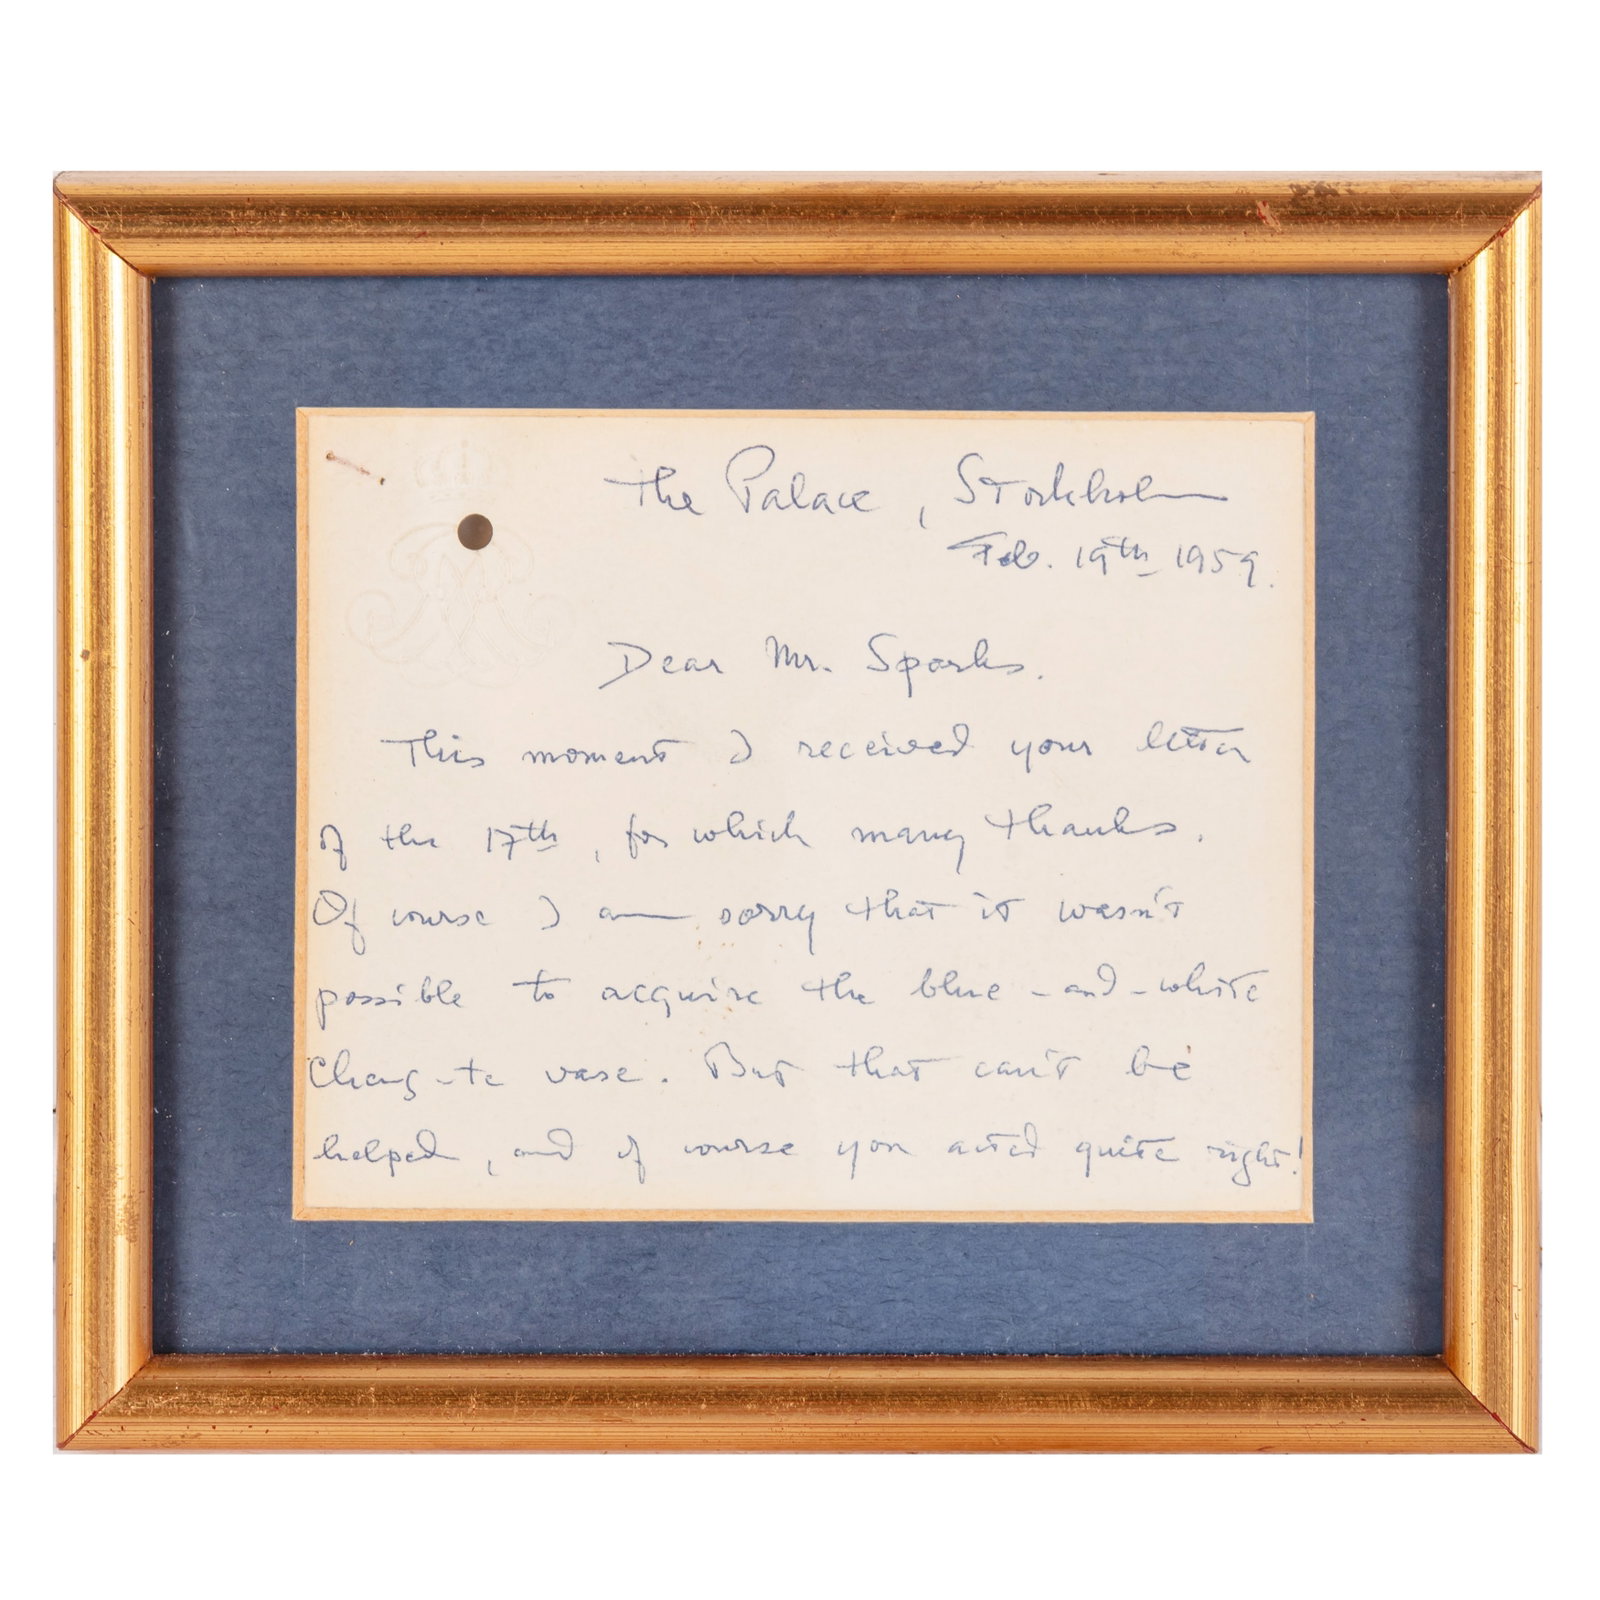 The Palace, Stockholm
Feb. 19th 1959.
Dear Mr. Sparks.
This moment I received your letter
of the 17th, for which many thanks.
Of course I am sorry that it wasn't
possible to acquire the blue-and-white
Cheng-te vase. But that can't be
helped, and of course you acted quite right!